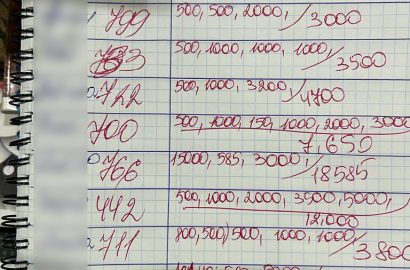 799 500, 500, 2000, / 3000
500, 1000, 1000, 1000, / 3500
722 500, 1000, 3200 / 4700
700 500, 1000, 150, 1000, 2000, 3000
7,650
766 15000, 585, 3000, / 18585
442 500, 1000, 2000, 3500, 5000,
12,000
711 800, 500, 500, 1000, 1000, / 3800